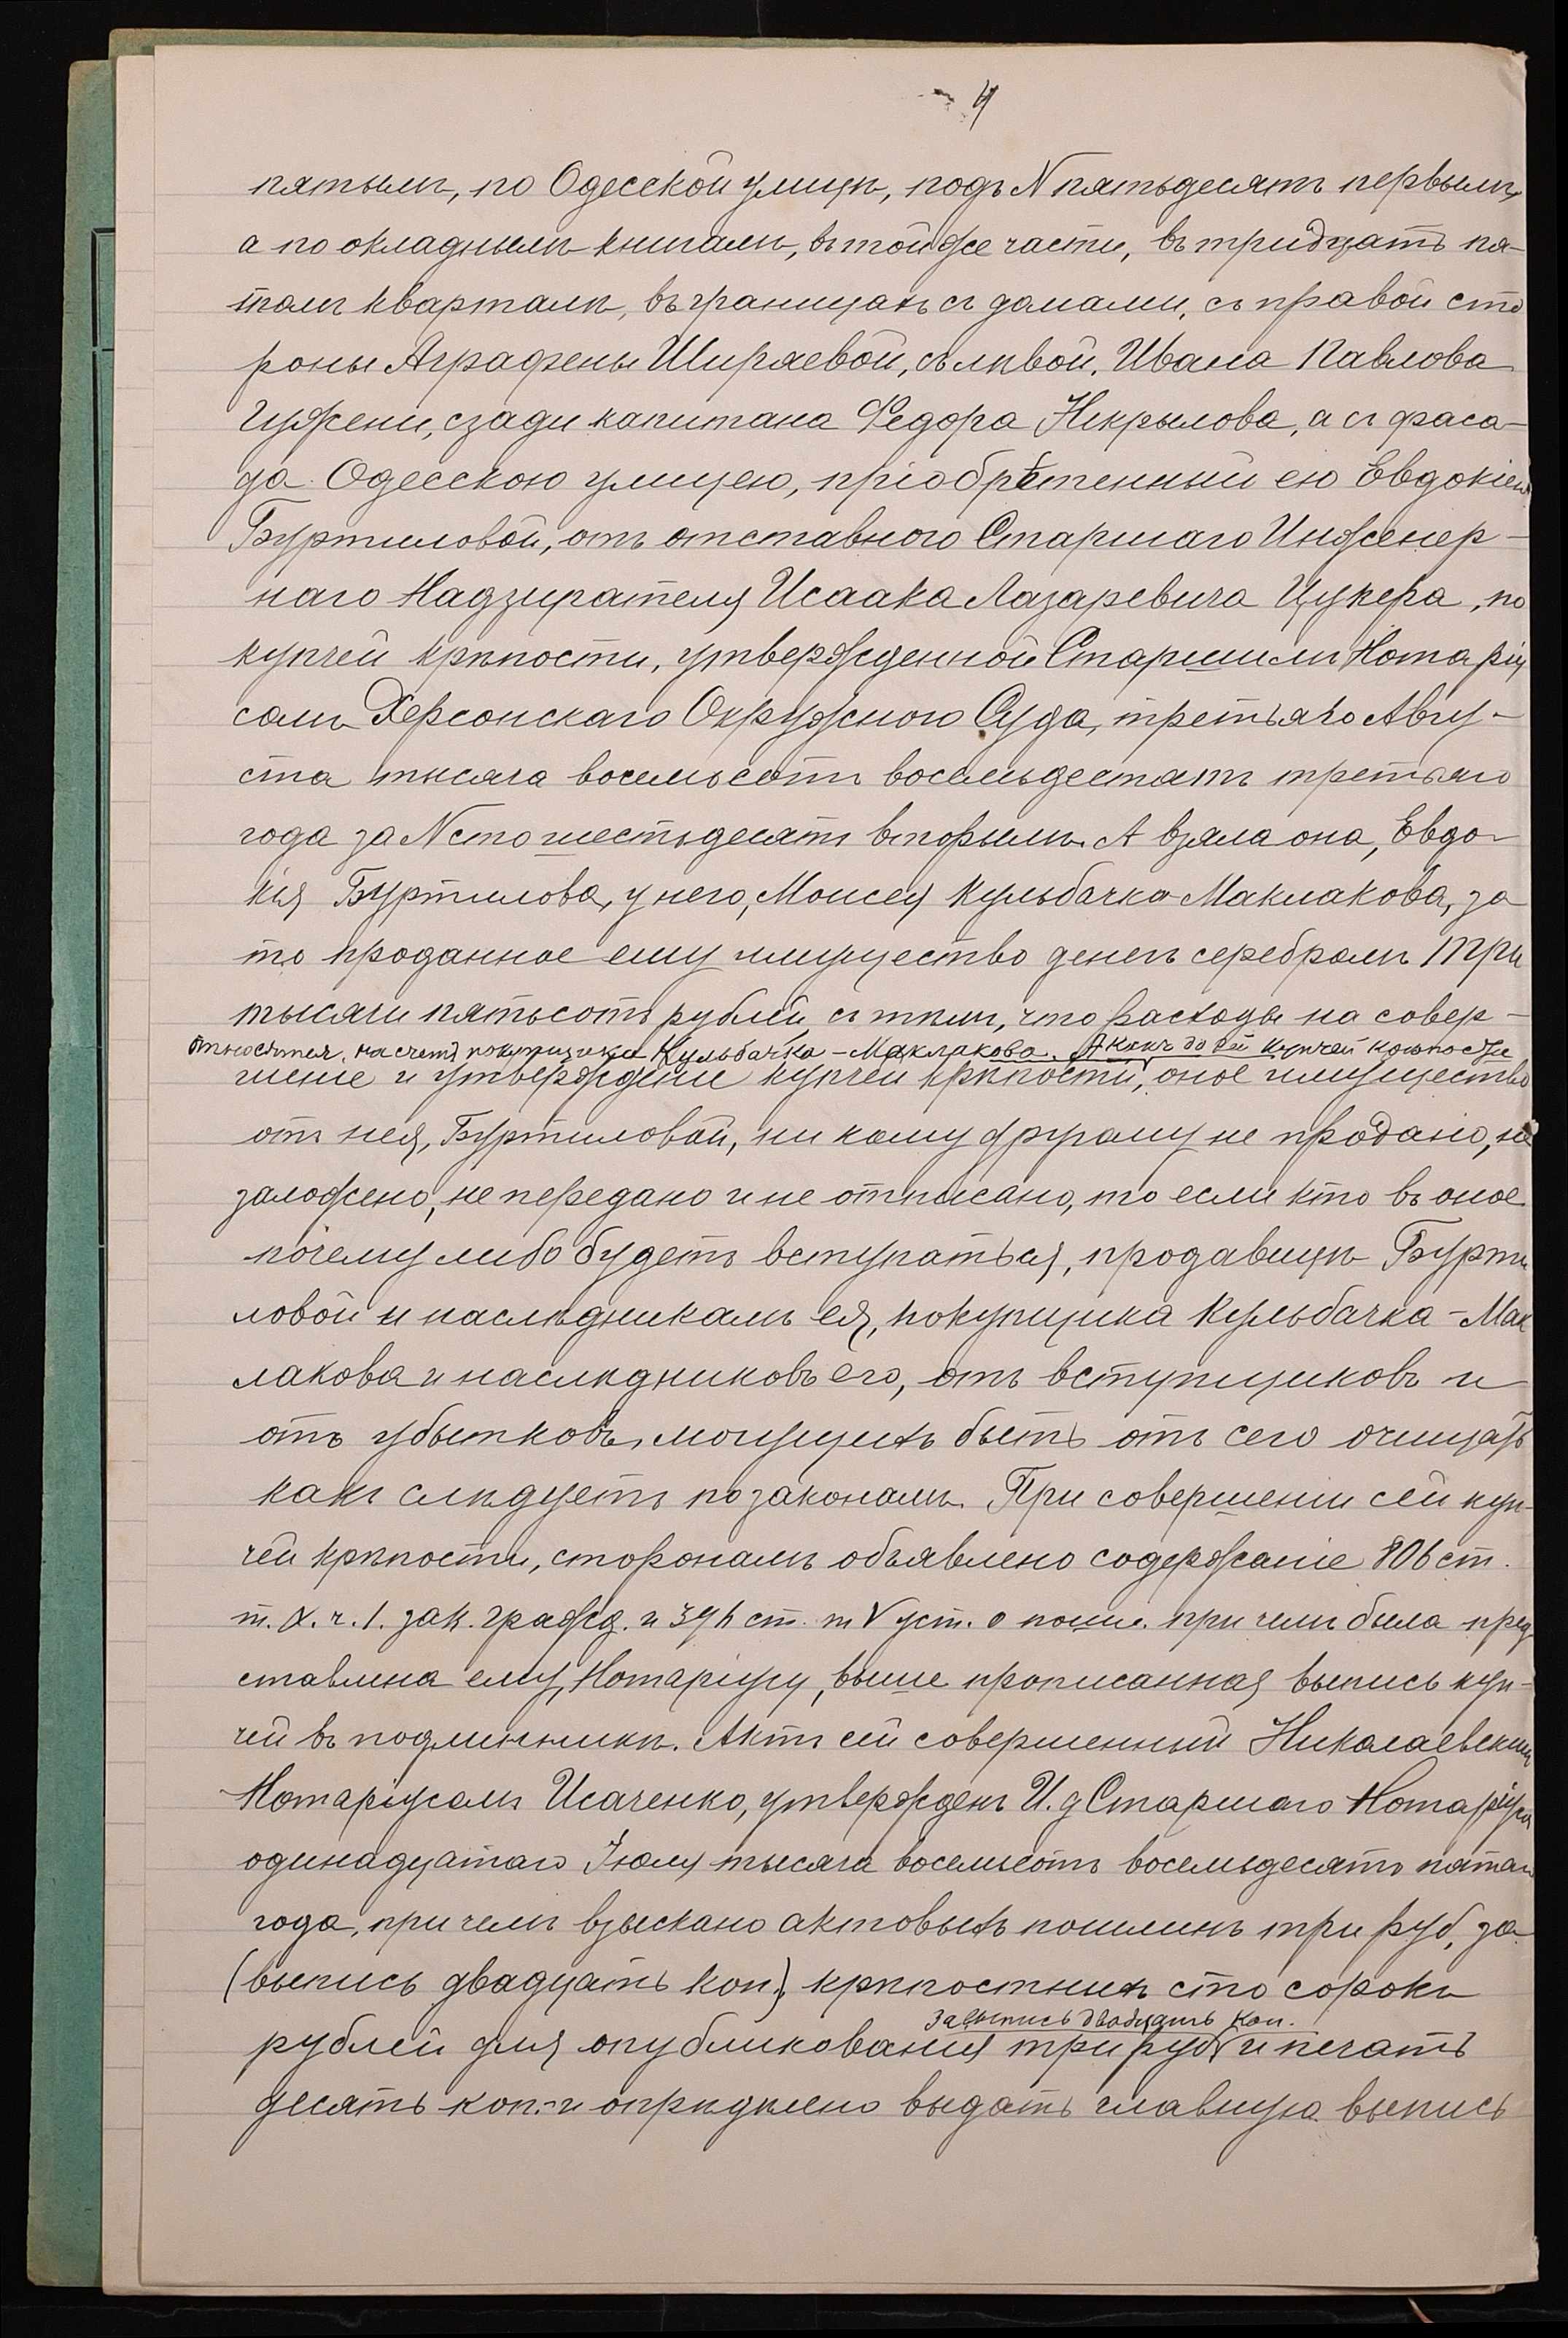 4
пятымъ, по Одесской улицѣ, подъ N пятьдесятъ первымъ,
а по окладнымъ книгамъ, въ той же части, въ тридцать пя-
томъ кварталѣ, въ границахъ съ домами, съ правой сто
роны Аграфены Ширяевой, съ лѣвой, Ивана Павлова
Гужени, сзади капитана Федора Некрылова, а съ фаса-
да Одесскою улицею, пріобрѣтенный ею Евдокіею
Буртиловой, отъ отставного Старшаго Инженер-
наго Надзирателя Исаака Лазаревича Цукера, по
купчей крѣпости, утвержденной Старшимъ Нотаріу
сомъ Херсонскаго Окружного Суда, третьяго Авгу-
ста тысяча восемьсотъ восемьдесятъ третьяго
года за N сто шестьдесятъ вторымъ. А взяла она, Евдо-
кія Буртилова, у него, Моисея Кульбачка-Маклакова, за
то проданное ему имущество денегъ серебромъ три
тысячи пятьсотъ рублей съ тѣмъ, что расходы на совер-
относятся, на счетъ покупщика Кульбачка-Маклакова. А какъ до сей купчей крѣпости
шеніе и утвержденіе купчей крѣпости, оное имущество
отъ нея, Буртиловой, ни кому другому не продано, не
заложено, не передано и не отписано, то если кто въ оное
почему либо будетъ вступаться, продавцѣ Бурти
ловой и наслѣдникамъ ея, покупщика Кульбачка-Мак
лакова и наслѣдниковъ его, отъ вступщиковъ и
отъ убытковъ, могущихъ быть отъ сего очищать
какъ слѣдуетъ по законамъ. При совершеніи сей куп-
чей крѣпости, сторонамъ объявлено содержаніе 806 ст.
т. X. ч. 1. зак. гражд. и ст. т V уст. о пошл. при чемъ была пред
ставлена ему, Нотаріусу, выше прописанная выпись куп-
чей въ подлинникѣ. Актъ сей совершенный Николаевскимъ
Нотаріусомъ Исаченко, утвержденъ И. д Старшаго Нотаріуса
одинадцатаго Іюля тысяча восемьсотъ восемьдесятъ пятаго
года, при чемъ взыскано актовыхъ пошлинъ три руб, за
(выпись двадцать коп.) крѣпостныхъ сто сорокъ
за выпись двадцать коп.
рублей для опубликованія три руб и печать
десять коп.- и опредѣлено выдать главную выпись